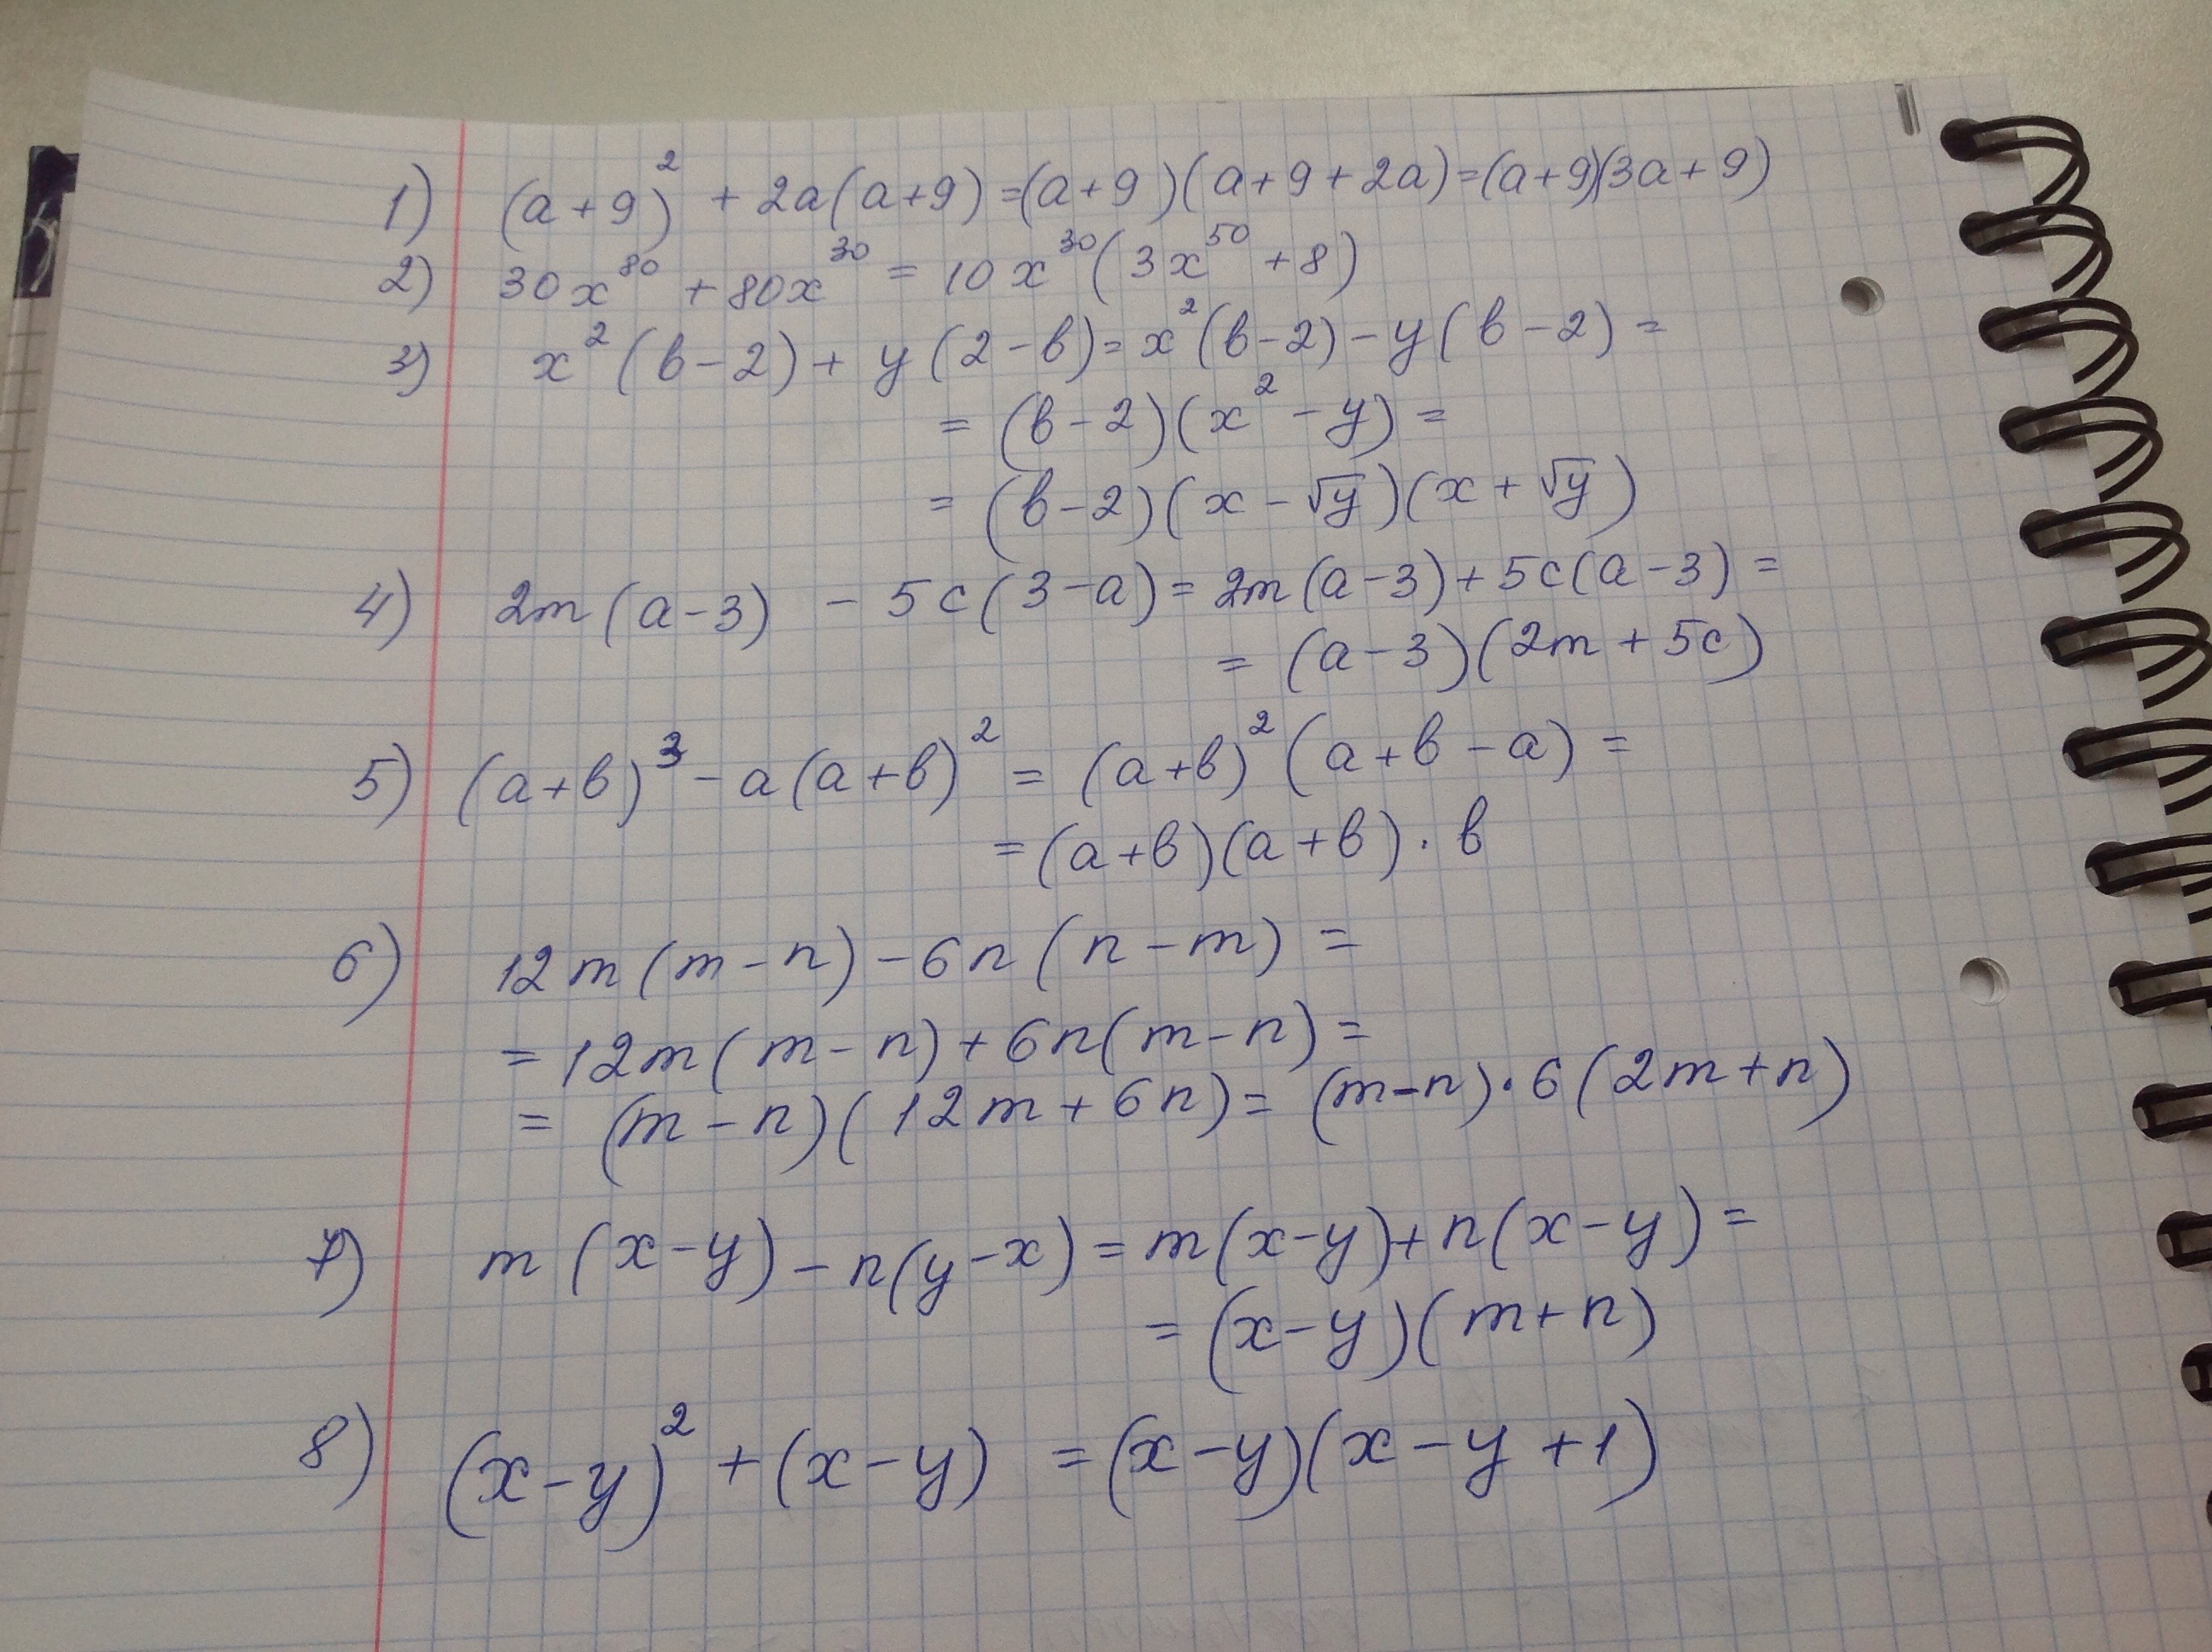 1) (a+9)² + 2a(a+9) = (a+9)(a+9+2a) = (a+9)(3a+9)
2) 30x⁸⁰ + 80x³⁰ = 10x³⁰(3x⁵⁰ + 8)
3) x²(b-2) + y(2-b) = x²(b-2) - y(b-2) =
= (b-2)(x² - y) =
= (b-2)(x - √y)(x + √y)
4) 2m(a-3) - 5c(3-a) = 2m(a-3) + 5c(a-3) =
= (a-3)(2m + 5c)
5) (a+b)³ - a(a+b)² = (a+b)²(a+b-a) =
= (a+b)(a+b)·b
6) 12m(m-n) - 6n(n-m) =
= 12m(m-n) + 6n(m-n) =
= (m-n)(12m+6n) = (m-n)·6(2m+n)
7) m(x-y) - n(y-x) = m(x-y) + n(x-y) =
= (x-y)(m+n)
8) (x-y)² + (x-y) = (x-y)(x-y+1)